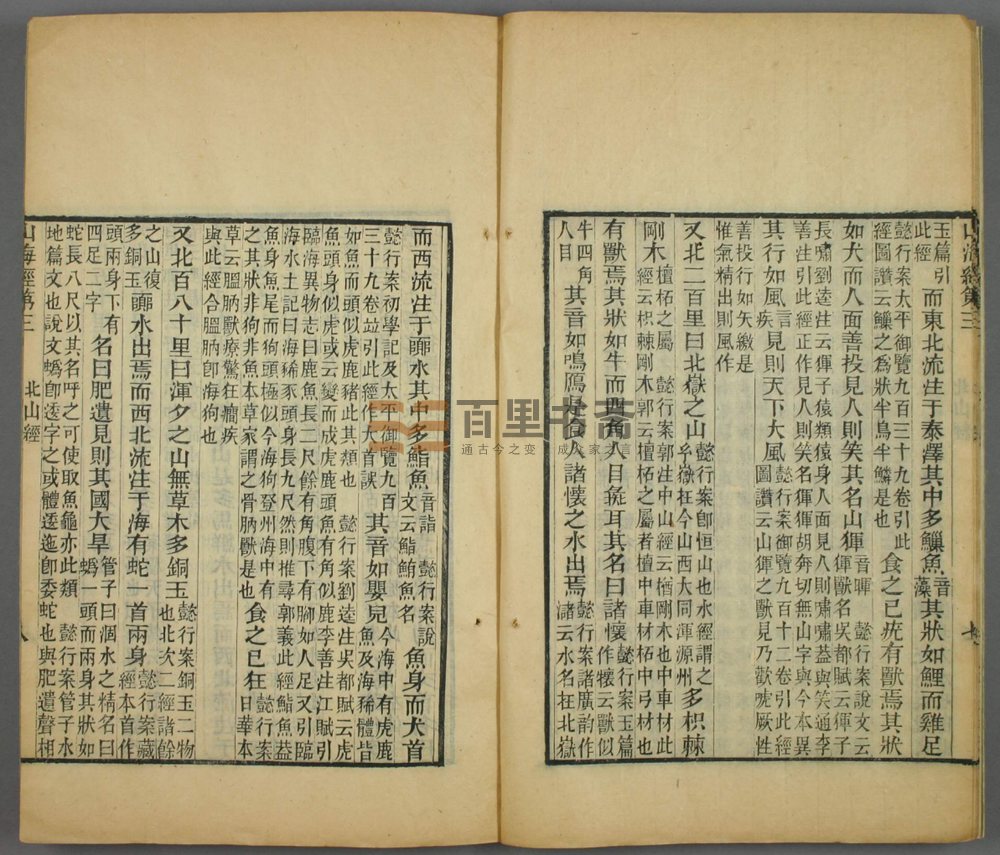 山海經第三 七
玉篇引此經 而東北流注于泰澤其中多䲃魚 音藻 其狀如鯉而雞足
懿行案太平御覽九百三十九卷引此經圖讚云䲃之爲狀半鳥半鱗是也 食之已疣有獸焉其狀
如犬而人面善投見人則笑其名山𤟤 音暉 懿行案說文云𤟤獸名吳都賦云𤟤子
長嘯劉逵注云𤟤子猿類猿身人面見人則嘯嘯蓋與笑通李善注引此經正作見人則笑名𤟤𤟤胡奔切無山字與今本異
其行如風 疾 見則天下大風 懿行案御覽九百十二卷引此經圖讚云山𤟤之獸見乃歡唬厥性
善投行如矢繳是惟氣精出則風作
又北二百里曰北嶽之山 懿行案卽恒山也水經謂之嶽在今山西大同渾源州 多枳棘
剛木 檀柘之屬 懿行案郭注中山經云楢剛木也中車材此經云枳棘剛木郭云檀柘之屬者檀中車材柘中弓材也
有獸焉其狀如牛而四角人目彘耳其名曰諸懷 懿行案玉篇作㹯云獸似牛四角人目
其音如鳴鴈是食人諸懷之水出焉 懿行案諸廣韵作㶆云水名在北嶽
而西流注于𡂡水其中多鮨魚 音詣 懿行案說文云鮨鮪魚名 魚身而犬首
懿行案初學記及太平御覽九百三十九卷竝引此經作犬首誤 其音如嬰兒 今海中有虎鹿魚及海狶體皆
如魚而頭似虎鹿豬此其類也 懿行案劉逵注吳都賦云虎魚頭身似虎或云變而成虎鹿頭魚有角似鹿李善注江賦引
臨海異物志曰鹿魚長二尺餘有角腹下有腳如人足又引臨海水土記曰海狶豕頭身長九尺然則推尋郭義此經鮨魚蓋
魚身魚尾而狗頭極似今海狗登州海中有之其狀非狗非魚本草家謂之骨肭獸是也 食之已狂 懿行案日華本
草云膃肭獸療驚狂癎疾與此經合膃肭卽海狗也
又北百八十里曰渾夕之山無草木多銅玉 懿行案銅玉二物也北次二經諸餘
之山復多銅玉 𡂡水出焉而西北流注于海有蛇一首兩身 懿行案藏經本首作
頭兩身下有四足二字 名曰肥遺見則其國大旱 管子曰涸水之精名曰蟡一頭而兩身其狀如
蛇長八尺以其名呼之可使取魚龜亦此類 懿行案管子水地篇文也說文蟡卽逶字之或體逶迤卽委蛇也與肥遺聲相
山海經第三 北山經 八
百里书斋
通古今之变 成仪家之言